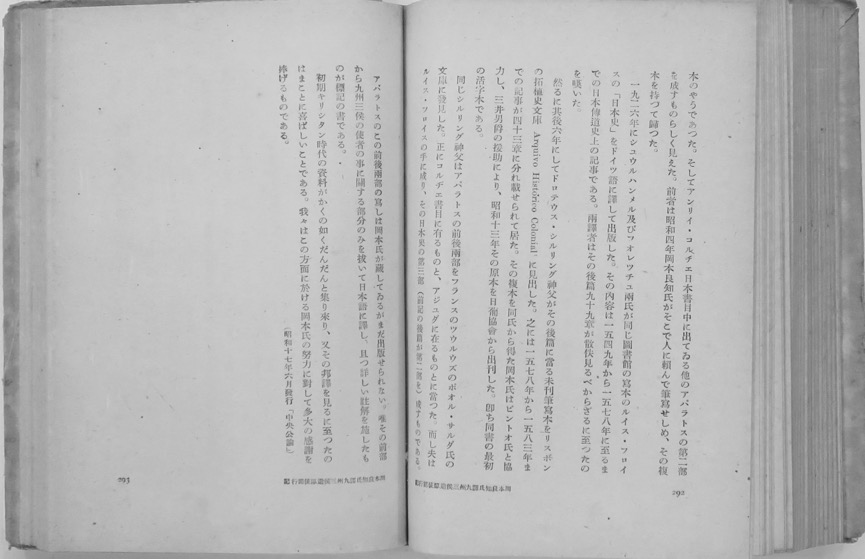 本のやうであつた。そしてアンリイ・コルヂエ日本書目中に出てゐる他のアパラトスの第二部
を成すものらしく見えた。前者は昭和四年岡本良知氏がそこで人に頼んで筆寫せしめ、その複
本を持つて歸つた。
一九二六年にシュウルハンメル及びフオレツチュ兩氏が同じ圖書館の寫本のルイス・フロイ
スの「日本史」をドイツ語に譯して出版した。その内容は一五四九年から一五七八年に至るま
での日本傳道史上の記事である。兩譯者はその後篇九十九章が散佚見るべからざるに至つたの
を嘆いた。
然るに其後六年にしてドロテウス・シルリング神父がその後篇に當る未刊筆寫本をリスボン
の拓殖史文庫 Arquivo Histórico Colonial に見出した。之には一五七八年から一五八三年ま
での記事が四十三章に分れ載せられて居た。その複本を同氏から得た岡本氏はピントオ氏と協
力し、三井男爵の援助により、昭和十三年その原本を日葡協會から出刊した。卽ち同書の最初
の活字本である。
同じシルリング神父はアパラトスの前後兩部をフランスのツウルウズのポオル・サルダ氏の
文庫に發見した。正にコルヂエ書目に有るものと、アジュダに在るものとに當つた。而し夫は
ルイス・フロイスの手に成り、その日本史の第三部(前記の後篇が第二部を)成すものである。
292
岡本良知氏譯九州三侯遣歐使節行記
アパラトスのこの前後兩部の寫しは岡本氏が藏してゐるがまだ出版せられない。唯その前部
から九州三侯の使者の事に關する部分のみを拔いて日本語に譯し、且つ詳しい註解を施したも
のが標記の書である。
初期キリシタン時代の資料がかくの如くだんだんと集り來り、又その邦譯を見るに至つたの
はまことに喜ばしいことである。我々はこの方面に於ける岡本氏の努力に對して多大の感謝を
捧げるものである。
(昭和十七年六月發行「中央公論」)
岡本良知氏譯九州三侯遣歐使節行記
293